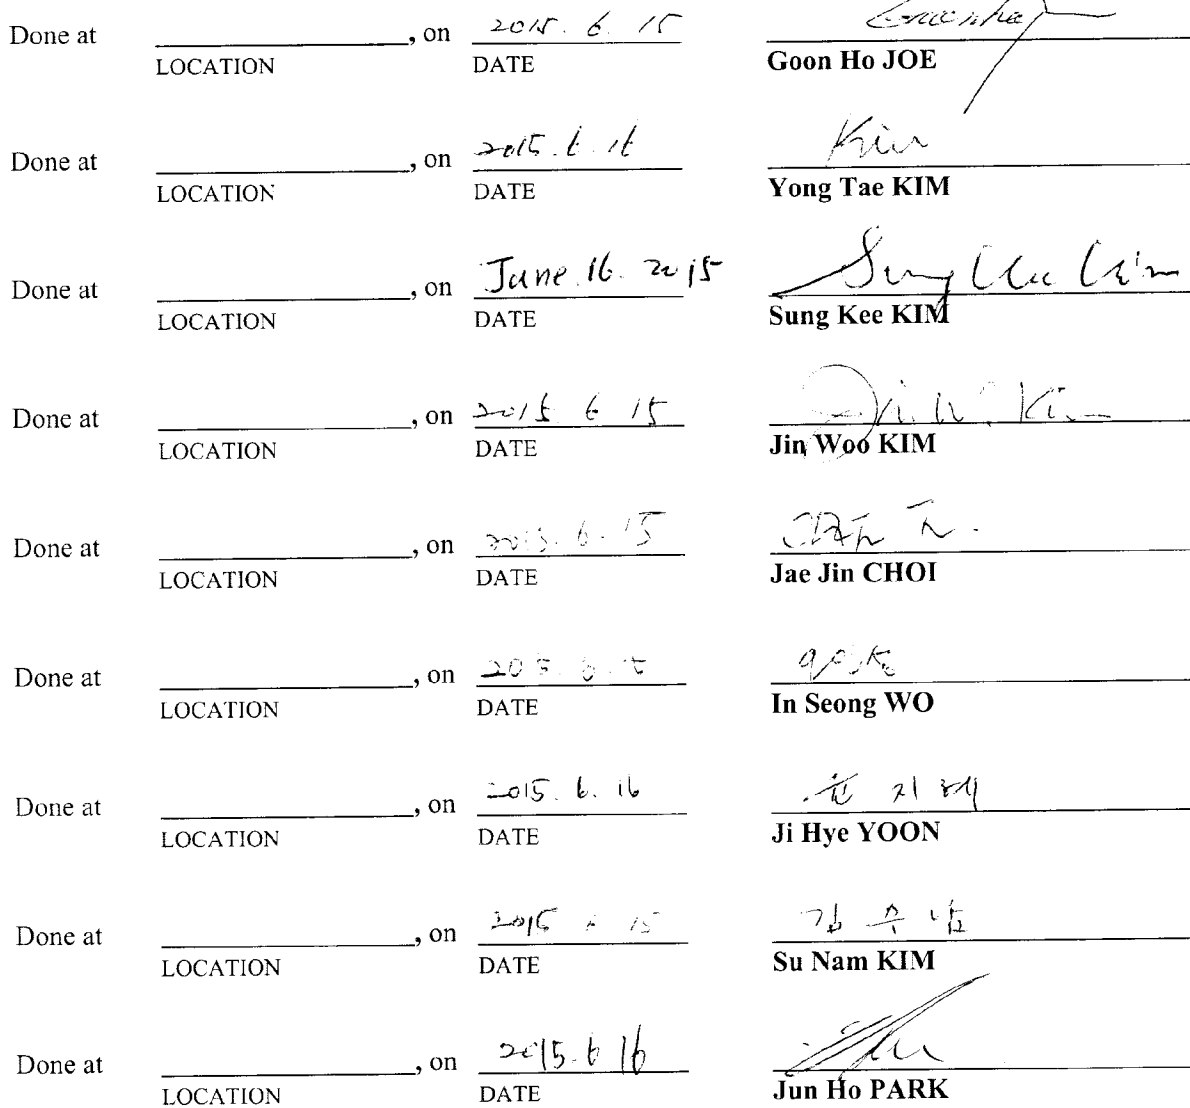 Done at , on 2015. 6. 15
LOCATION DATE Goon Ho JOE
Done at , on 2015. 6. 16 Kim
LOCATION DATE Yong Tae KIM
Done at , on June. 16. 2015 Sung Kee Kim
LOCATION DATE Sung Kee KIM
Done at , on 2015 6 15 Jin W. Kim
LOCATION DATE Jin Woo KIM
Done at , on 2015. 6. 15
LOCATION DATE Jae Jin CHOI
Done at , on
LOCATION DATE In Seong WO
Done at , on 2015. 6. 16 윤 지 혜
LOCATION DATE Ji Hye YOON
Done at , on 2015 6 15 김 수 남
LOCATION DATE Su Nam KIM
Done at , on 2015. 6 16
LOCATION DATE Jun Ho PARK